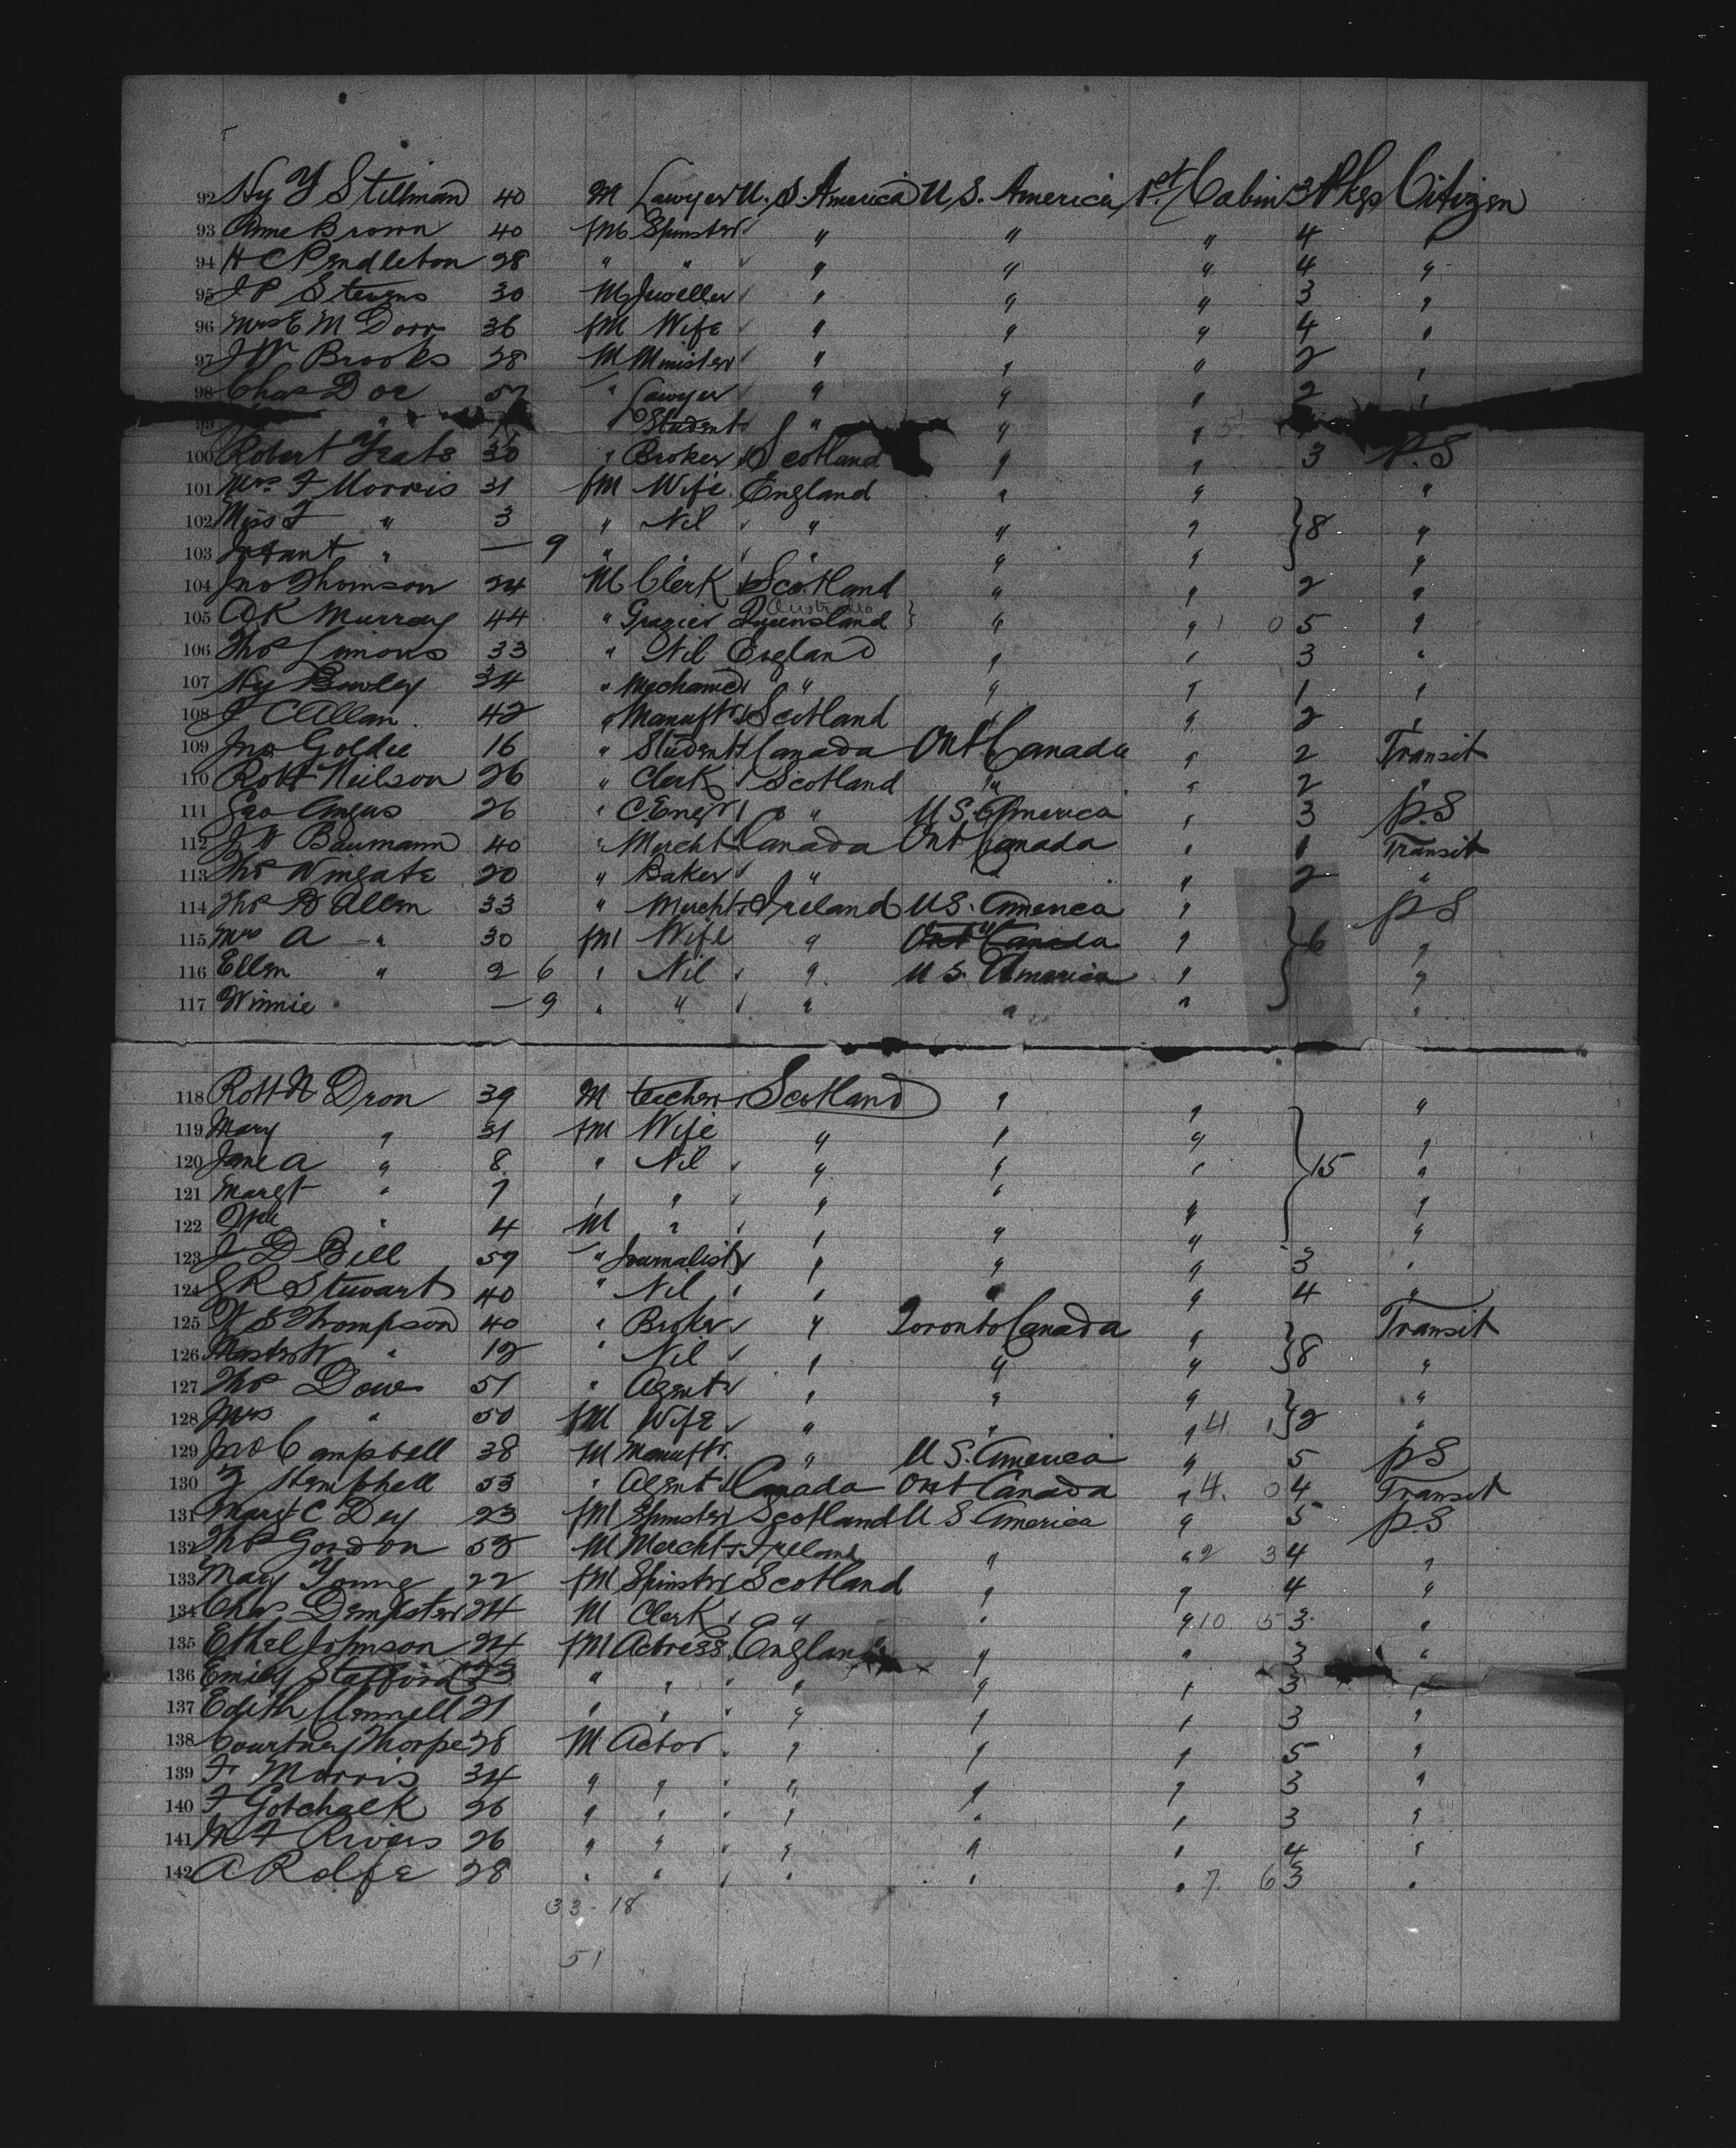 92 Hy Y Stillman 40 M Lawyer U. S. America U. S. America 1st Cabin 3 Pkgs Citizen
93 Anne Brown 40 fM Spinster " " " 4 "
94 H C Pendleton 28 " " " " " 4 "
95 J P Stevens 30 M Jeweller " " " 3 "
96 Mrs E M Dorr 36 fM Wife " " " 4 "
97 J W Brooks 28 M Minister " " " 2 "
98 Chas Doe 57 " Lawyer " " " 2 "
99 " " Student " " "
100 Robert Yeats 30 " Broker Scotland " " 3 P.S
101 Mrs F Morris 31 fM Wife England " " "
102 Miss F " 3 " Nil " " " } 8 "
103 Infant " — 9 " " " " " "
104 Jno Thomson 24 M Clerk Scotland " " 2 "
105 A K Murray 44 " Grazier Queensland Australia } " " 1 0 5 "
106 Thos Simons 33 " Nil England " " 3 "
107 Hy Bewley 34 " Mechanic " " " 1 "
108 J C Allan 42 " Manuftr Scotland " " 2 "
109 Jno Goldie 16 " Student Canada Ont Canada " 2 Transit
110 Robt Neilson 26 " Clerk Scotland " " 2 "
111 Geo Angus 26 " C. Engr " U S. America " 3 P.S
112 J W Baumann 40 " Mercht Canada Ont Canada " 1 Transit
113 Thos Wingate 20 " Baker " " " 2 "
114 Thos B Allen 33 " Mercht Ireland U S. America " P S
115 Mrs A " 30 fM Wife " Ont Canada " } 6 "
116 Ellen " 2 6 " Nil " U S. America " "
117 Winnie " — 9 " " " " " "
118 Robt N Dron 39 M teacher Scotland " " "
119 Mary " 31 fM Wife " " " "
120 Jane A " 8 " Nil " " " } 15 "
121 Margt " 7 " " " " " "
122 " 4 M " " " " "
123 J D Bell 59 " Journalist " " " 3 "
124 R Stewart 40 " Nil " " " 4 "
125 W S Thompson 40 " Broker " Toronto Canada " Transit
126 Master W " 12 " Nil " " " } 8 "
127 Thos Dow 51 " Agent " " " "
128 Mrs " 50 fM Wife " " " 4 1 } 2 "
129 Jno Campbell 38 M Manuftr. " U S. America " 5 P S
130 Hemphell 53 " Agent Canada Ont Canada " 4. 0 4 Transit
131 Margt C Dey 23 fM Spinster Scotland U S America " 5 P.S
132 Thos Gordon 52 M Mercht Ireland " " 2 3 4 "
133 Mary Young 22 fM Spinster Scotland " " 4 "
134 Chas Dempster 24 M Clerk " " " 10 5 3 "
135 Ethel Johnson 24 fM Actress England " " 3 "
136 Emily Stafford 23 " " " " " 3 "
137 Edith 21 " " " " " 3 "
138 Courtney Thorpe 28 M Actor " " " 5 "
139 F Morris 34 " " " " " 3 "
140 F Gotchalk 26 " " " " " 3 "
141 W F Rivers 26 " " " " " 4 "
142 A Rolfe 28 " " " " " 7. 6 3 "
33 - 18
51